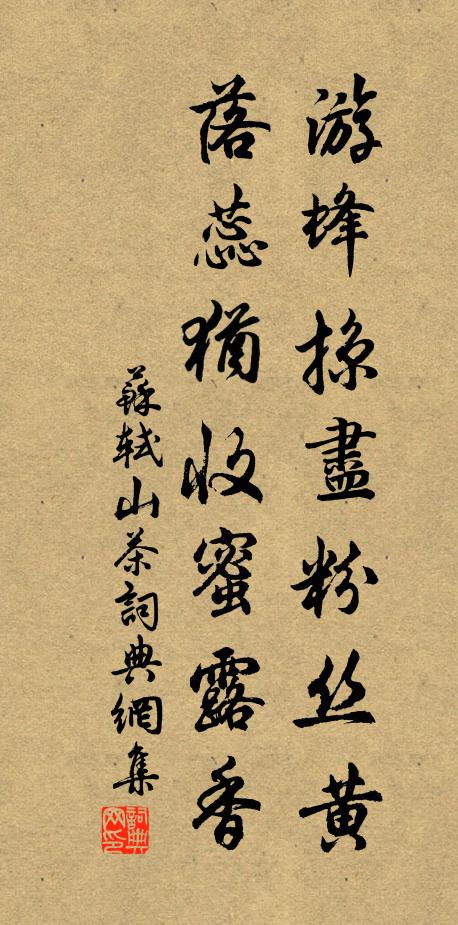 游蜂掠盡粉丝黄
落蕊猶收蜜露香
蘇軾山茶詞典網集
詞典网印